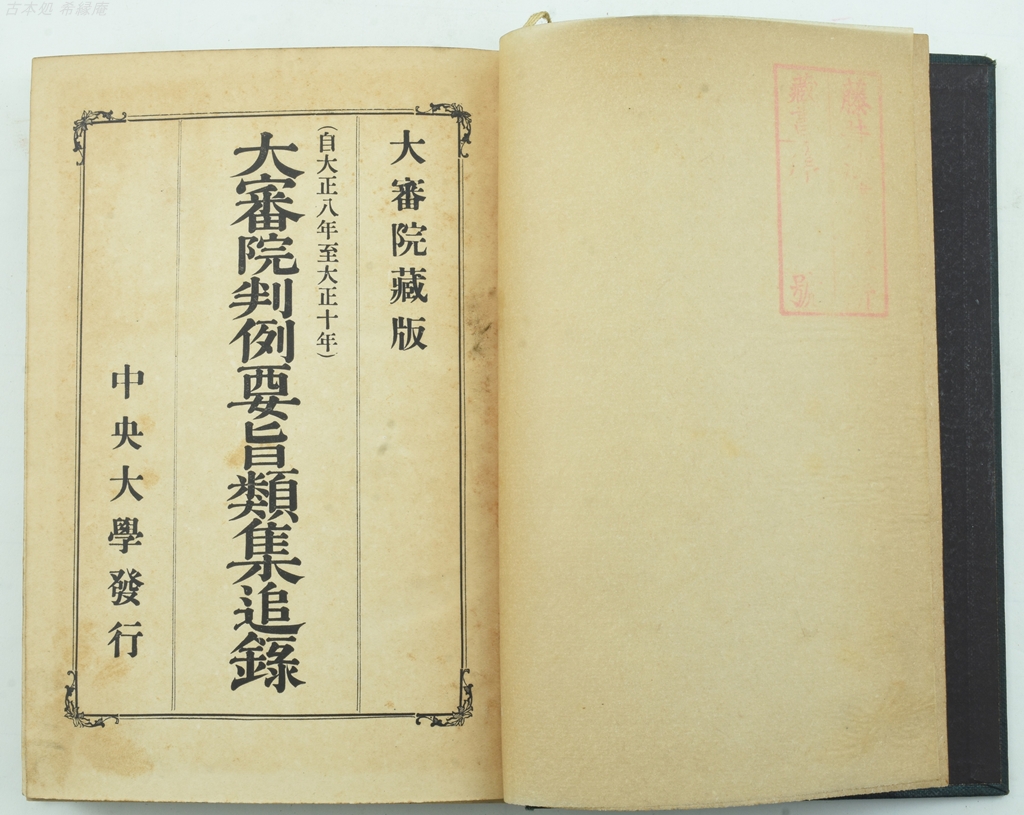 古本処 希縁庵
大審院藏版
(自大正八年至大正十年)
大審院判例要旨類集追錄
中央大學發行
號